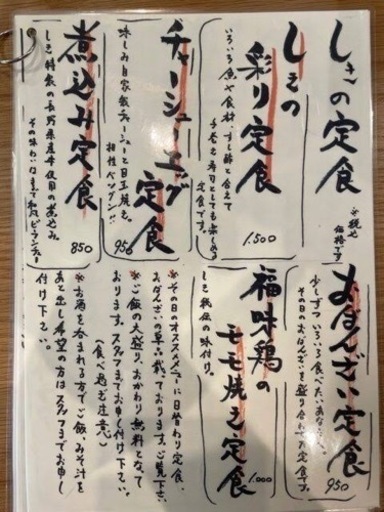 しきの定食
※税込
価格です
しきの
彩り定食
いろいろ魚や食材、すし酢と合えて
手巻き寿司としても楽しめる
定食です。
1.500
チャーシューエッグ
定食
味しみ自家製チャーシューと目玉焼き。
相性バツグン!!
950
煮込み定食
しき特製の長野県産牛使用の煮込み。
その味わいはまるで和風ビーフシチュー
850
おばんざい定食
少しずついろいろ食べたいあなたへ。
その日のおばんざいを盛り合わせた定食です。
950
福味鶏の
モモ焼き定食
しき秘伝の味付け。
1.000
※その日のオススメメニューに日替わり定食、
おばんざいの単品載っております。ご覧下さい。
※ご飯の大盛り、おかわり無料となって
おります。スタッフまでお申し付け下さい。
(食べ過ぎ注意)
※お酒を呑まれる方でご飯、みそ汁を
あと出し希望の方はスタッフまでお申し
付け下さい。